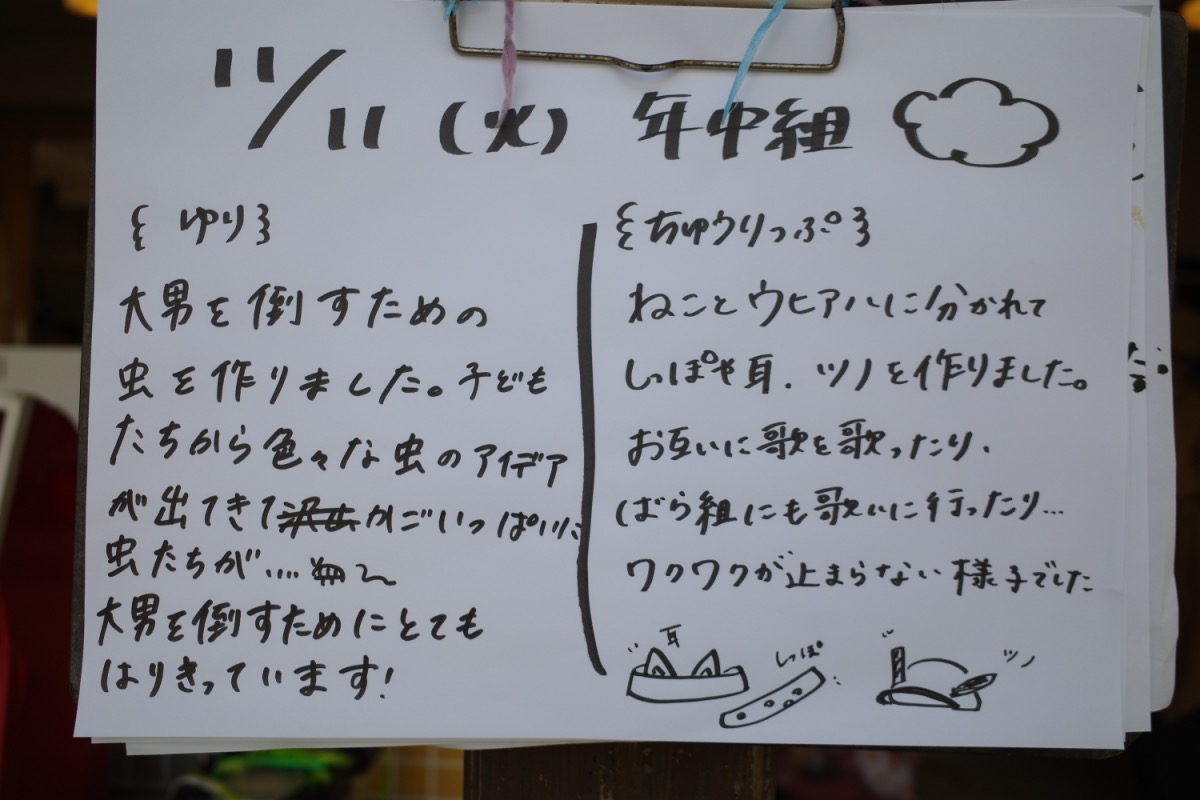 11/11 (火) 年中組
{ゆり}
大男を倒すための
虫を作りました。子ども
たちから色々な虫のアイデア
が出てきて かごいっぱいに
虫たちが....
大男を倒すためにとても
はりきっています!
{ちゅうりっぷ}
ねことウヒアハに分かれて
しっぽや耳、ツノを作りました。
お互いに歌を歌ったり、
ばら組にも歌いに行ったり...
ワクワクが止まらない様子でした
耳
しっぽ
ツノ